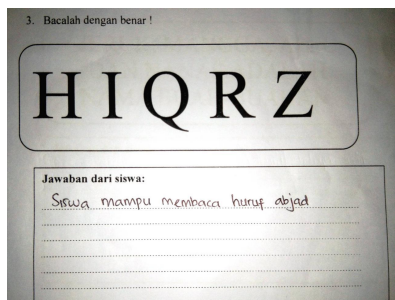 3. Bacalah dengan benar !
H I Q R Z
Jawaban dari siswa:
Siswa mampu membaca huruf abjad